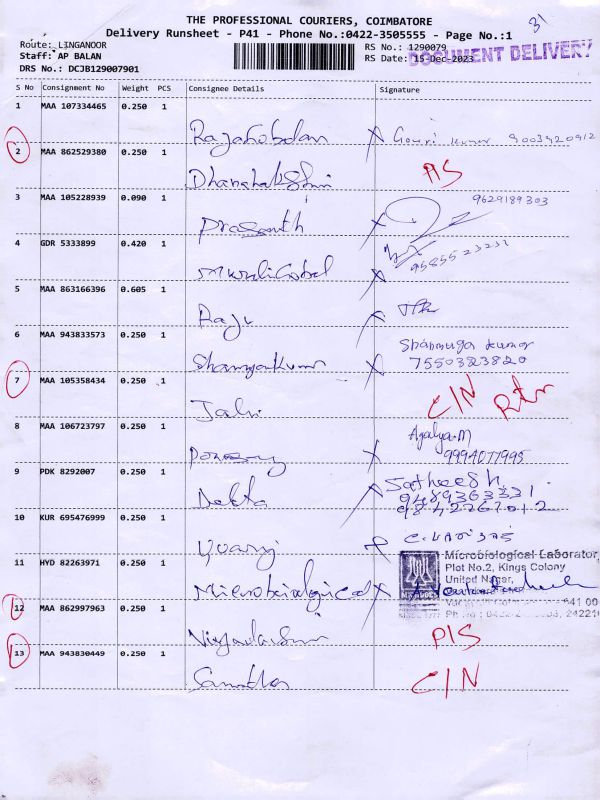 31
THE PROFESSIONAL COURIERS, COIMBATORE
Delivery Runsheet - P41 - Phone No.:0422-3505555 - Page No.:1
Route: LINGANOOR
Staff: AP BALAN
DRS No.: DCJB129007901
RS No.: 1290079
RS Date: 15-Dec-2023
DOCUMENT DELIVERY
S No Consignment No Weight PCS Consignee Details Signature
1 MAA 107334465 0.250 1
Gouri kumar 9003920912
2 MAA 862529380 0.250 1
Dhanalakshmi
3 MAA 105228939 0.090 1
Prasanth 9629189303
4 GDR 5333899 0.420 1
MuraliGobal 9585523232
5 MAA 863166396 0.605 1
Raju
6 MAA 943833573 0.250 1
Shanmuga kumar
7550323820
7 MAA 105358434 0.250 1
C/N
8 MAA 106723797 0.250 1
9994077995
9 PDK 8292007 0.250 1
Dekta Satheesh
9489363331
10 KUR 695476999 0.250 1
11 HYD 82263971 0.250 1
Microbiological
Microbiological Laborator
Plot No.2, Kings Colony
United Nagar,
641 00
12 MAA 862997963 0.250 1
13 MAA 943830449 0.250 1
C/N